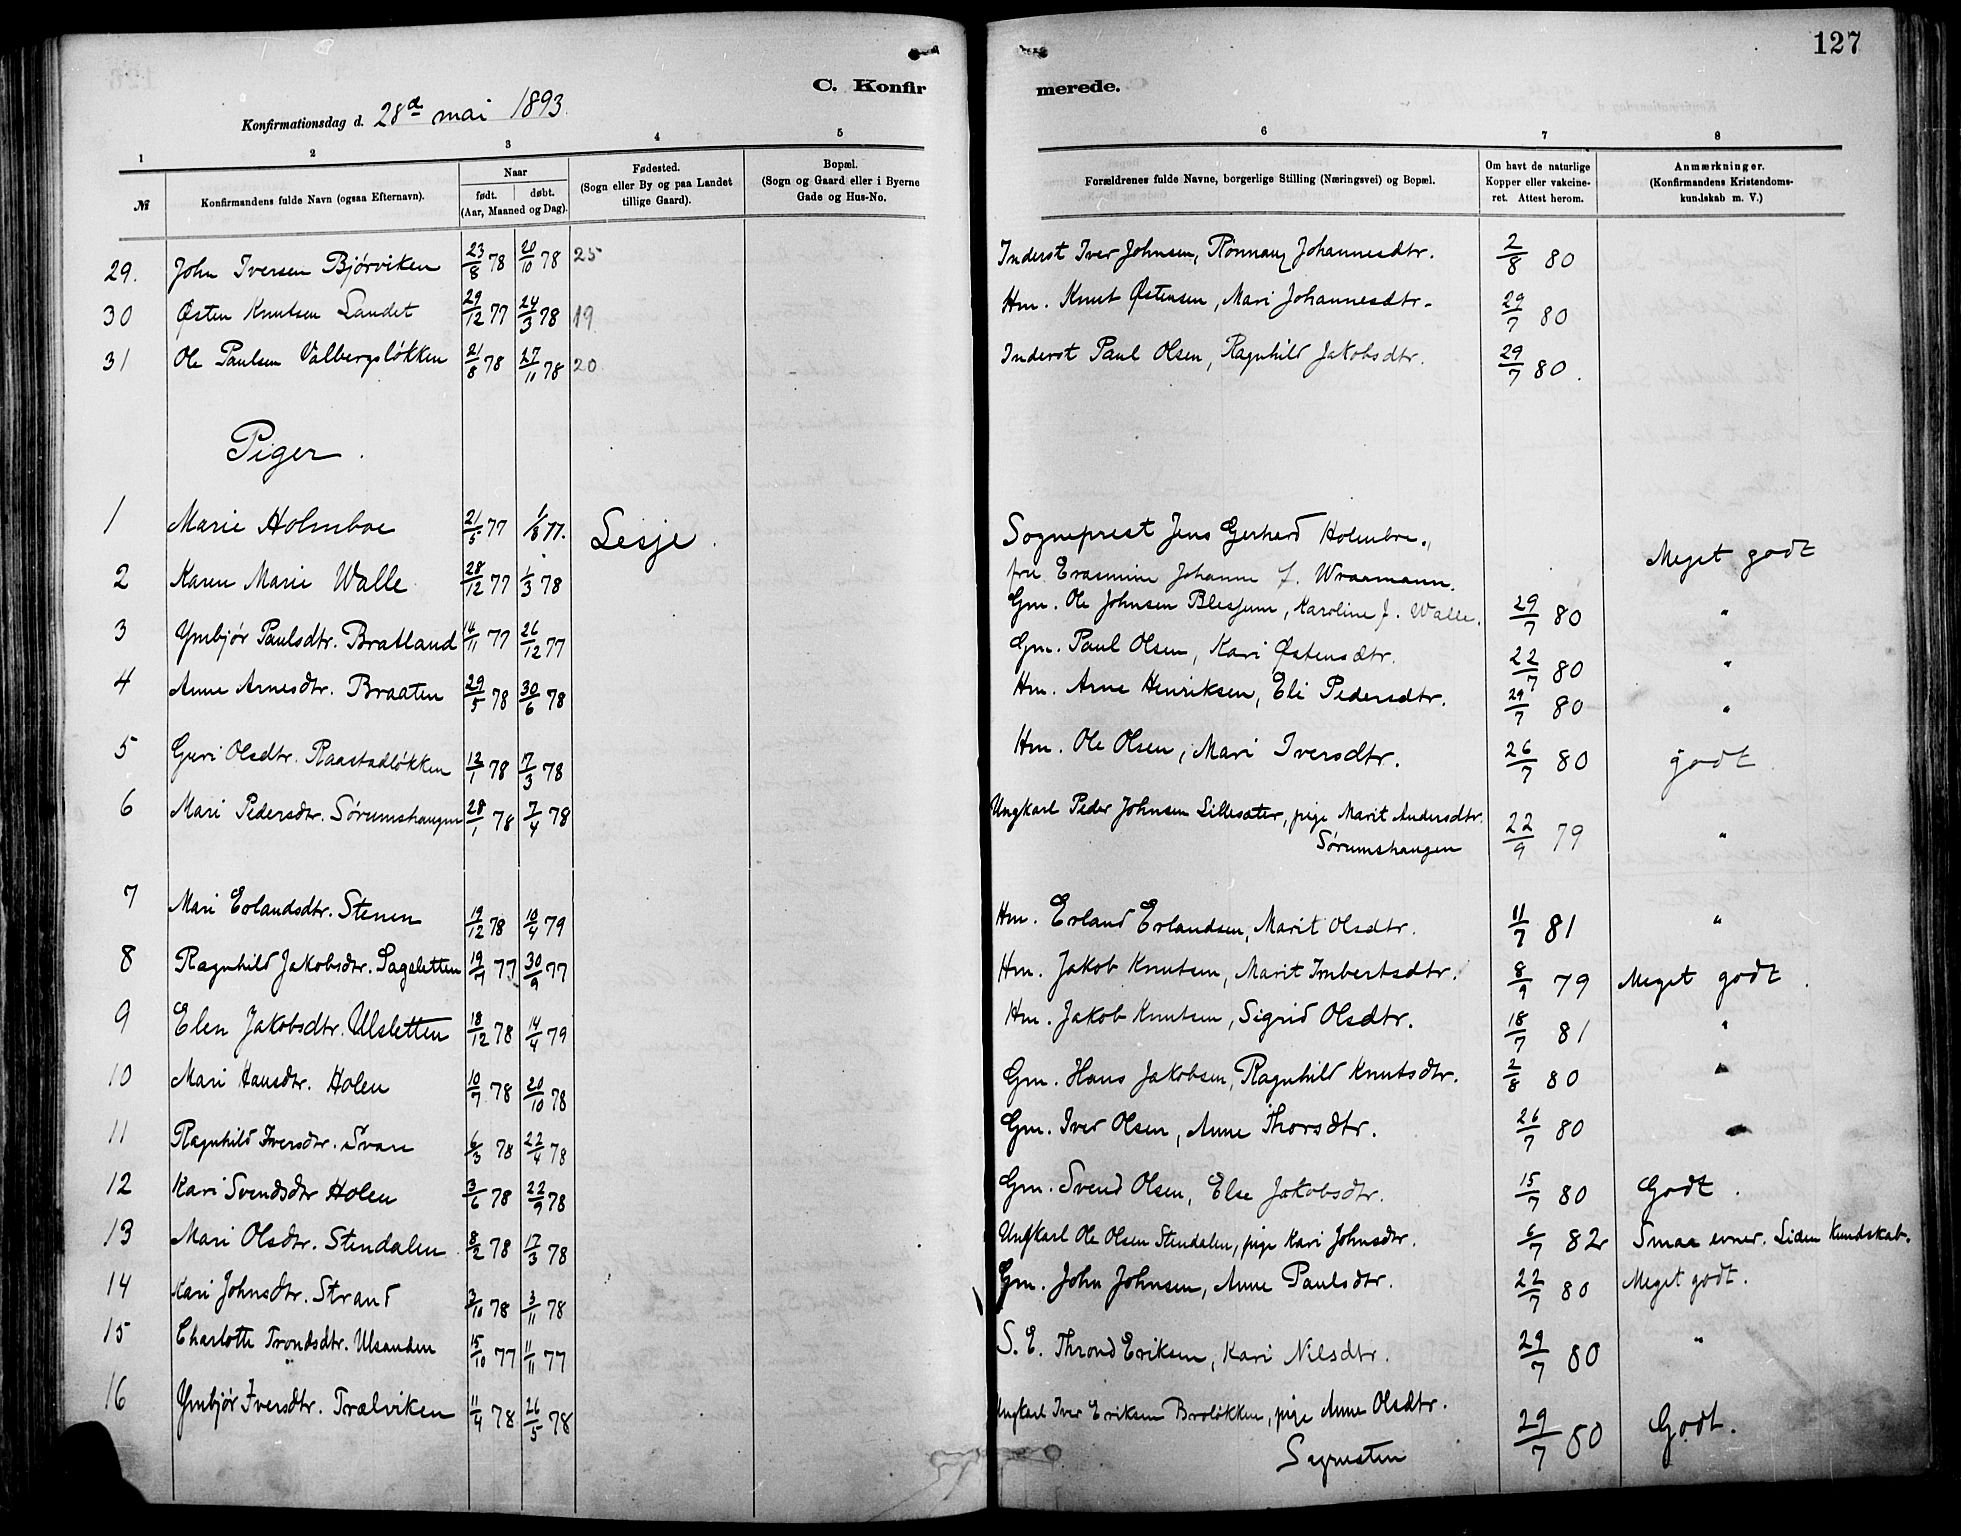 127
C. Konfirmerede.
Konfirmationsdag d. 28de mai 1893.
1 2 3 4 5 6 7 8
№
Konfirmandens fulde Navn (ogsaa Efternavn).
Naar
født. døbt.
(Aar, Maaned og Dag).
Fødested.
(Sogn eller By og paa Landet
tillige Gaard).
Bopæl.
(Sogn og Gaard eller i Byerne
Gade og Hus-No.
Forældrenes fulde Navne, borgerlige Stilling (Næringsvei) og Bopæl.
Om havt de naturlige
Kopper eller vakcine-
ret. Attest herom.
Anmærkninger.
(Konfirmandens Kristendoms-
kundskab m. V.)
29. John Iversen Bjørviken 23/8 78 20/10 78 25 Inderst Iver Johnsen, Rønnaug Johannesdtr. 2/8 80
30 Østen Knutsen Landet 29/12 77 24/3 78 19 Hm. Knut Østensen, Mari Johannesdtr. 29/7 80
31 Ole Paulsen Valbergsløkken 21/8 78 27/11 78 20. Inderst Paul Olsen, Ragnhild Jakobsdtr. 29/7 80.
Piger.
1 Marie Holmboe 21/5 77 1/8 77. Lesje. Sogneprest Jens Gerhard Holmboe., Meget godt
fru Erasmine Johanne f. Wraamann.
2 Karen Marie Walle 28/12 77 1/3 78 Gm. Ole Johnsen Blessum, Karoline f. Walle. 29/7 80 "
3 Ymbjør Paulsdtr. Bratland 14/11 77 26/12 77 Gm. Paul Olsen, Kari Østensdtr. 22/7 80 "
4 Anne Arnesdtr. Braaten 29/5 78 30/6 78 Hm. Arne Henriksen, Eli Pedersdtr. 29/7 80 "
5 Guri Olsdtr. Raastadløkken 12/1 78 17/3 78 Hm. Ole Olsen, Mari Iversdtr. 26/7 80 godt
6 Mari Pedersdtr. Sørumshaugen 28/1 78 7/4 78 Ungkarl Peder Johnsen Lillesæter, pige Marit Andersdtr. 22/9 79 "
Sørumshaugen
7 Mari Erlandsdtr. Stenen 19/12 78 10/4 79 Hm. Erland Erlandsen, Marit Olsdtr. 11/7 81 "
8 Ragnhild Jakobsdtr. Sagsletten 19/7 77 30/9 77 Hm. Jakob Knutsen, Marit Imbertsdtr. 8/9 79 Meget godt.
9 Elen Jakobsdtr. Ulsletten 18/12 78 14/4 79 Hm. Jakob Knutsen, Sigrid Olsdtr. 18/7 81 "
10 Mari Hansdtr. Holen 10/7 78 20/10 78 Gm. Hans Jakobsen, Ragnhild Knutsdtr. 2/8 80 "
11 Ragnhild Iversdtr. Svare 6/3 78 22/4 78 Gm. Iver Olsen, Anne Thorsdtr. 26/7 80 "
12 Kari Svendsdtr Holen 3/6 78 22/9 78 Gm. Svend Olsen, Else Jakobsdtr. 15/7 80 Godt.
13 Mari Olsdtr. Stendalen 8/2 78 17/3 78 Ungkarl Ole Olsen Stendalen, pige Kari Johnsdtr. 6/7 82 Smaa evner. Liden kundskab.
14 Kari Johnsdtr. Strand 3/10 78 3/11 78 Gm. John Johnsen, Anne Paulsdtr. 22/7 80 Meget godt.
15 Charlotte Trondsdtr. Ulsanden 15/10 77 11/11 77 S. E. Thrond Eriksen, Kari Nilsdtr. 29/7 80 "
16 Ymbjør Iversdtr. Trælviken 11/4 78 26/5 78 Ungkarl Iver Eriksen Broløkken, pige Anne Olsdtr. 29/7 80 Godt.